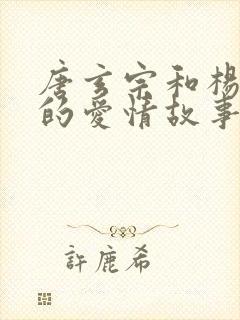 唐玄宗和楊
的愛情故事
許鹿希